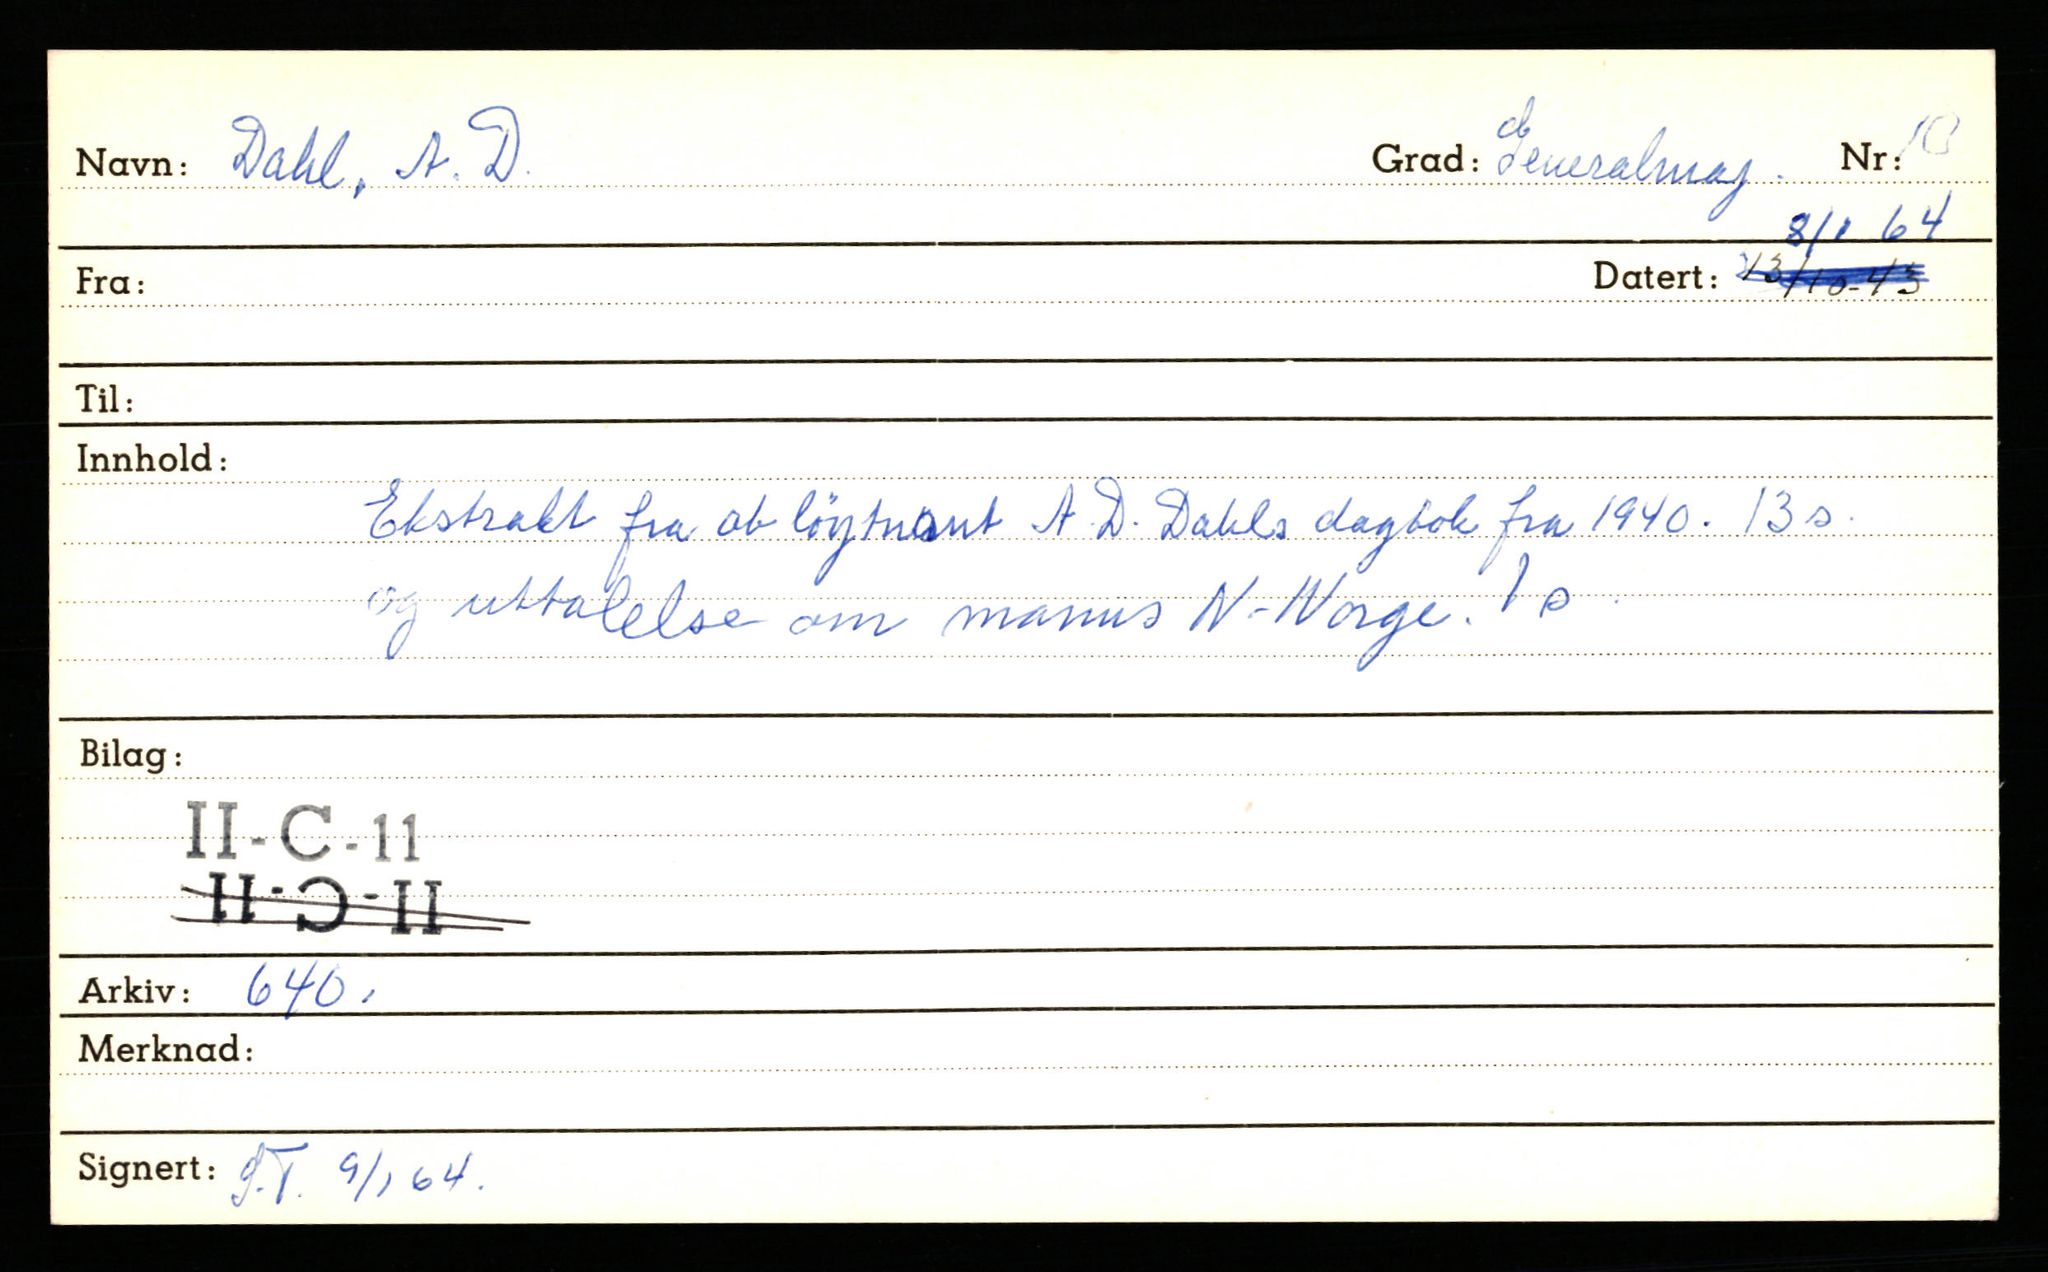 Navn: Dahl, A. D. Grad: Generalmaj. Nr: 10
8/1 64
Fra: Datert: 13/10-43
Til:
Innhold:
Ekstrakt fra ob löytnant A. D. Dahls dagbok fra 1940. 13 s.
og uttalelse om manus N-Norge. 1 s.
Bilag:
II-C-11
II-C-11
Arkiv: 640.
Merknad:
Signert: S.T. 9/1 64.